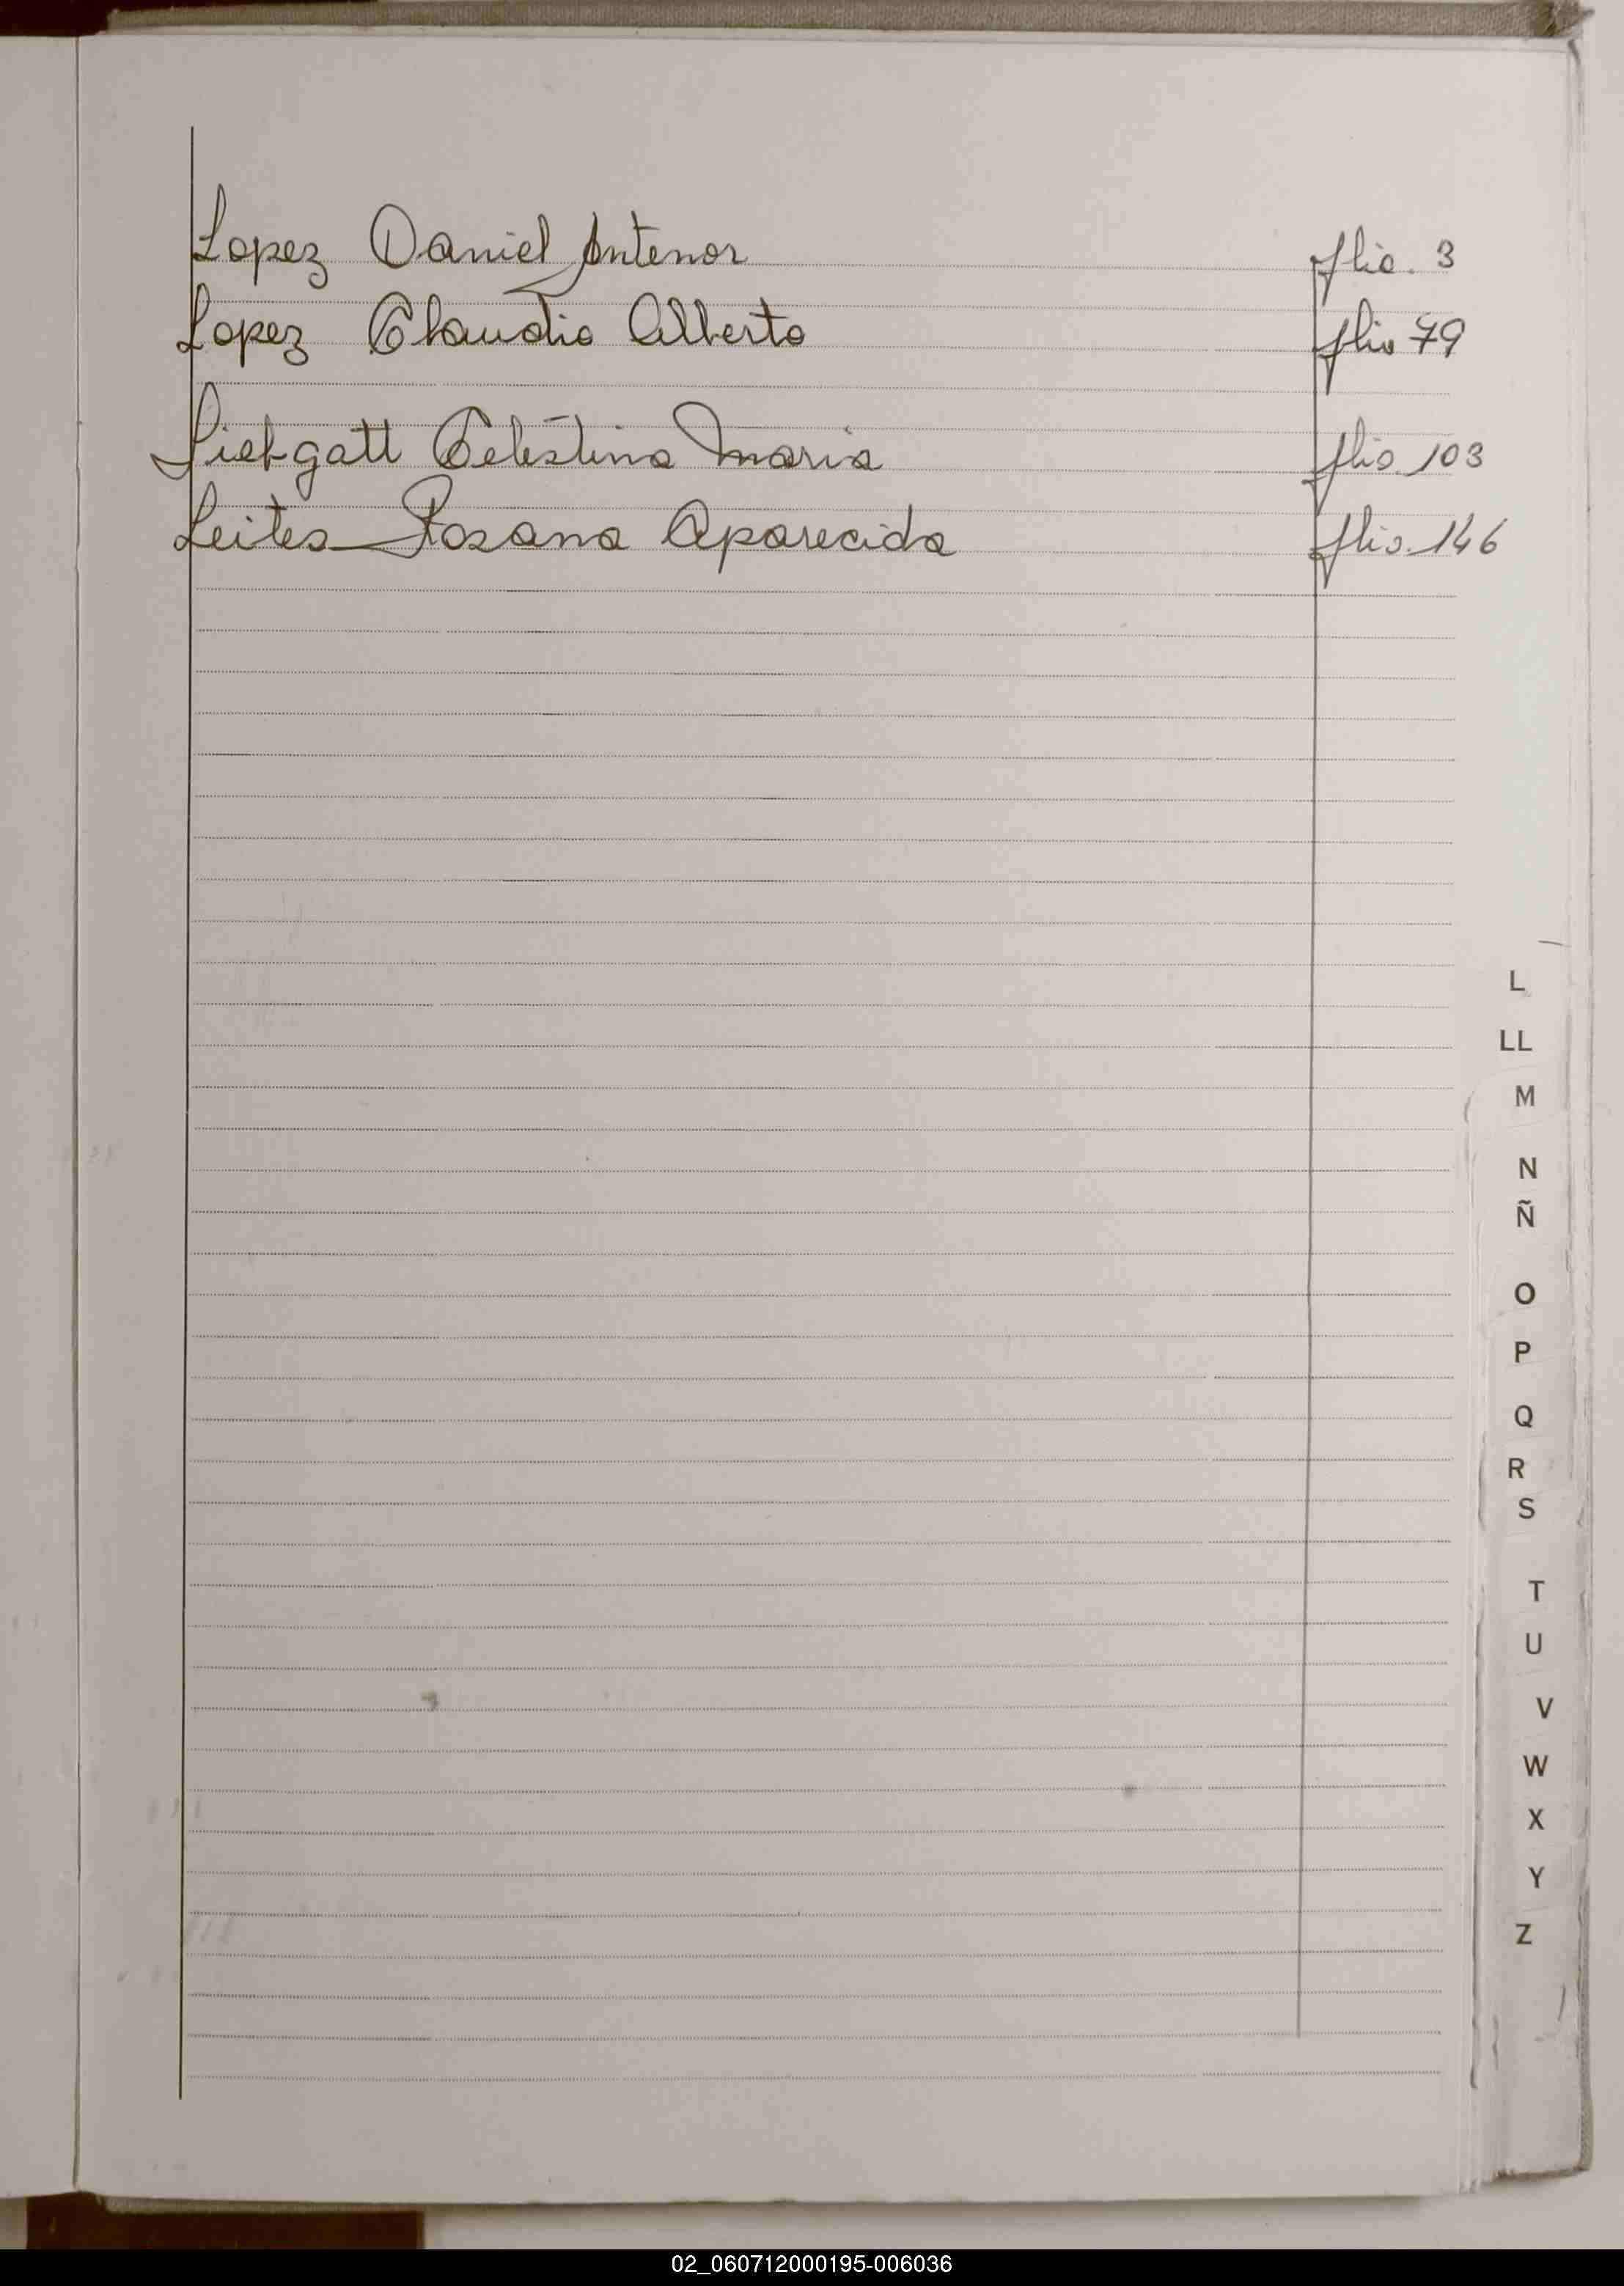 Lopez Daniel Antenor flio. 3
Lopez Claudio Alberto flio 79
Celestina Maria flio. 103
Leites Rosana Aparecida flio. 146
L
LL
M
N
Ñ
O
P
Q
R
S
T
U
V
W
X
Y
Z
02_060712000195-006036